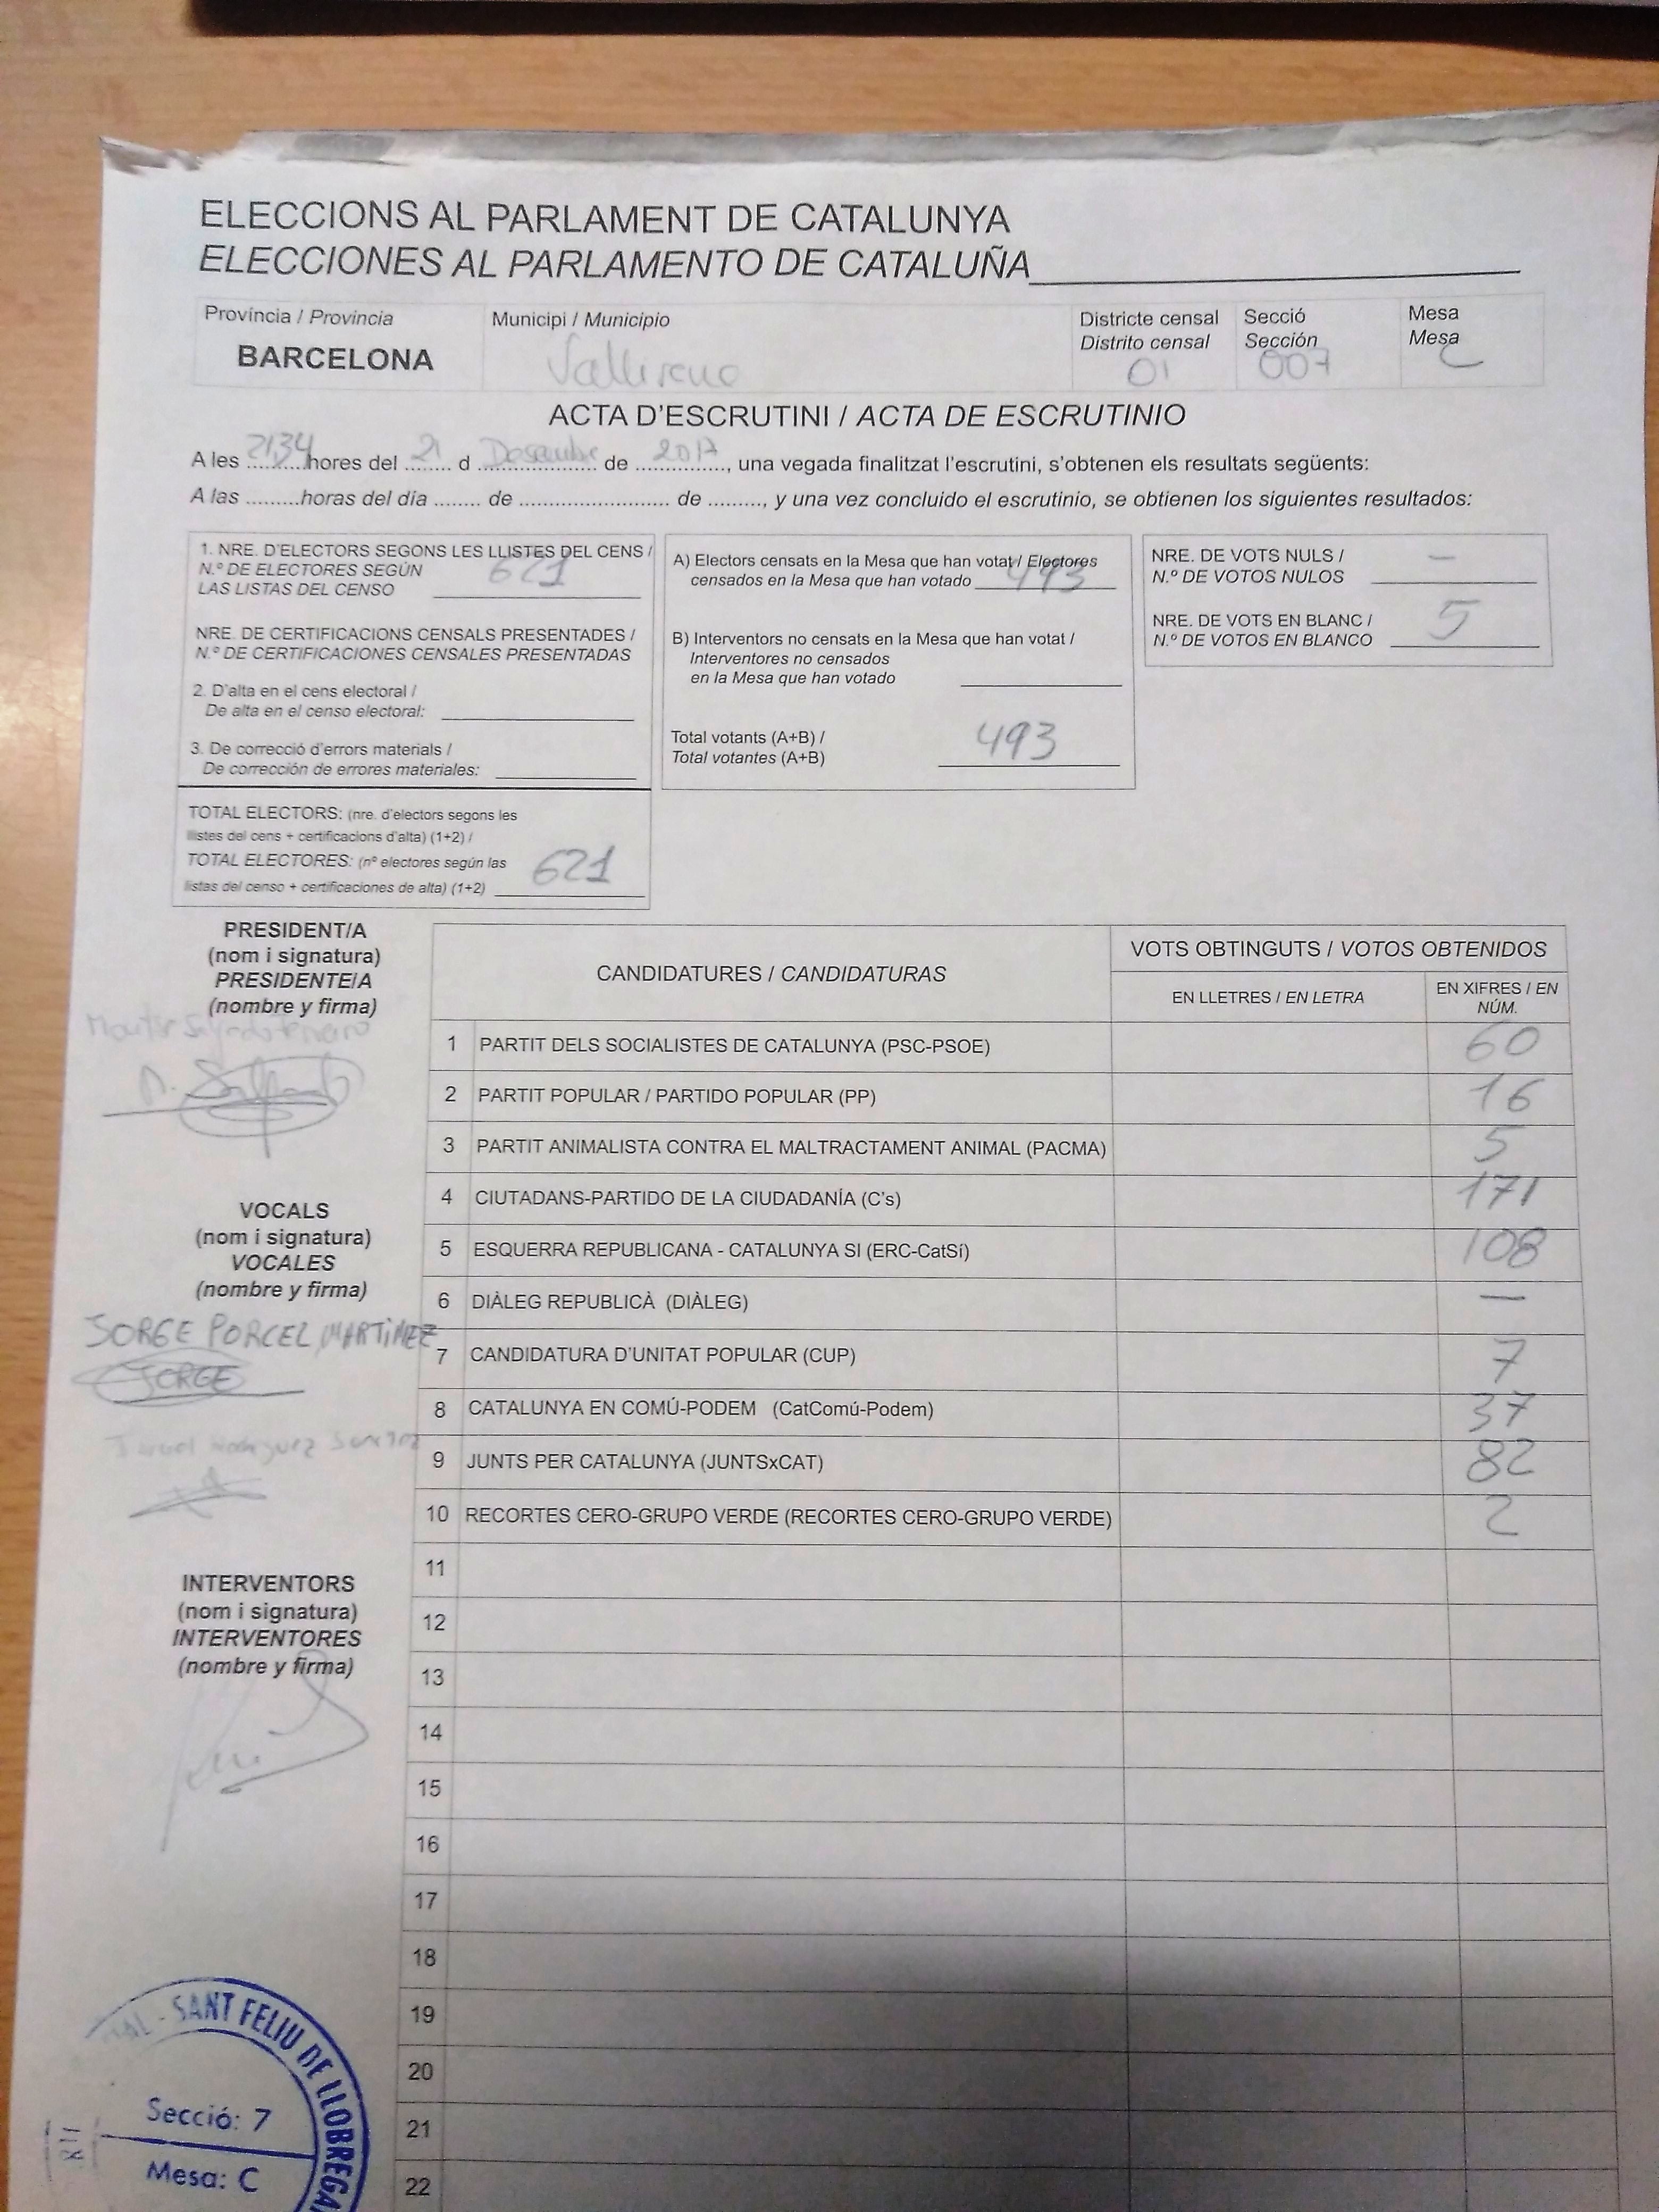 ELECCIONS AL PARLAMENT DE CATALUNYA
ELECCIONES AL PARLAMENTO DE CATALUÑA
Província / Provincia
BARCELONA
Municipi / Municipio
Vallirana
Districte censal
Distrito censal
01
Secció
Sección
007
Mesa
Mesa
C
ACTA D'ESCRUTINI / ACTA DE ESCRUTINIO
A les 21:34 hores del 21 d Desembre de 2017, una vegada finalitzat l'escrutini, s'obtenen els resultats següents:
A las .........horas del día ........ de .......................... de ........., y una vez concluido el escrutinio, se obtienen los siguientes resultados:
1. NRE. D'ELECTORS SEGONS LES LLISTES DEL CENS /
N.º DE ELECTORES SEGÚN
LAS LISTAS DEL CENSO 621
NRE. DE CERTIFICACIONS CENSALS PRESENTADES /
N.º DE CERTIFICACIONES CENSALES PRESENTADAS
2. D'alta en el cens electoral /
De alta en el censo electoral:
3. De correcció d'errors materials /
De corrección de errores materiales:
TOTAL ELECTORS: (nre. d'electors segons les
llistes del cens + certificacions d'alta) (1+2) /
TOTAL ELECTORES: (nº electores según las
listas del censo + certificaciones de alta) (1+2) 621
A) Electors censats en la Mesa que han votat / Electores
censados en la Mesa que han votado 493
B) Interventors no censats en la Mesa que han votat /
Interventores no censados
en la Mesa que han votado
Total votants (A+B) /
Total votantes (A+B) 493
NRE. DE VOTS NULS /
N.º DE VOTOS NULOS —
NRE. DE VOTS EN BLANC /
N.º DE VOTOS EN BLANCO 5
PRESIDENT/A
(nom i signatura)
PRESIDENTE/A
(nombre y firma)
VOCALS
(nom i signatura)
VOCALES
(nombre y firma)
JORGE PORCEL MARTINEZ
JORGE
INTERVENTORS
(nom i signatura)
INTERVENTORES
(nombre y firma)
CANDIDATURES / CANDIDATURAS
VOTS OBTINGUTS / VOTOS OBTENIDOS
EN LLETRES / EN LETRA
EN XIFRES / EN
NÚM.
1 PARTIT DELS SOCIALISTES DE CATALUNYA (PSC-PSOE) 60
2 PARTIT POPULAR / PARTIDO POPULAR (PP) 16
3 PARTIT ANIMALISTA CONTRA EL MALTRACTAMENT ANIMAL (PACMA) 5
4 CIUTADANS-PARTIDO DE LA CIUDADANÍA (C's) 171
5 ESQUERRA REPUBLICANA - CATALUNYA SI (ERC-CatSí) 108
6 DIÀLEG REPUBLICÀ (DIÀLEG) —
7 CANDIDATURA D'UNITAT POPULAR (CUP) 7
8 CATALUNYA EN COMÚ-PODEM (CatComú-Podem) 37
9 JUNTS PER CATALUNYA (JUNTSxCAT) 82
10 RECORTES CERO-GRUPO VERDE (RECORTES CERO-GRUPO VERDE) 2
11
12
13
14
15
16
17
18
19
20
21
22
SANT FELIU DE LLOBREGA
Secció: 7
Mesa: C